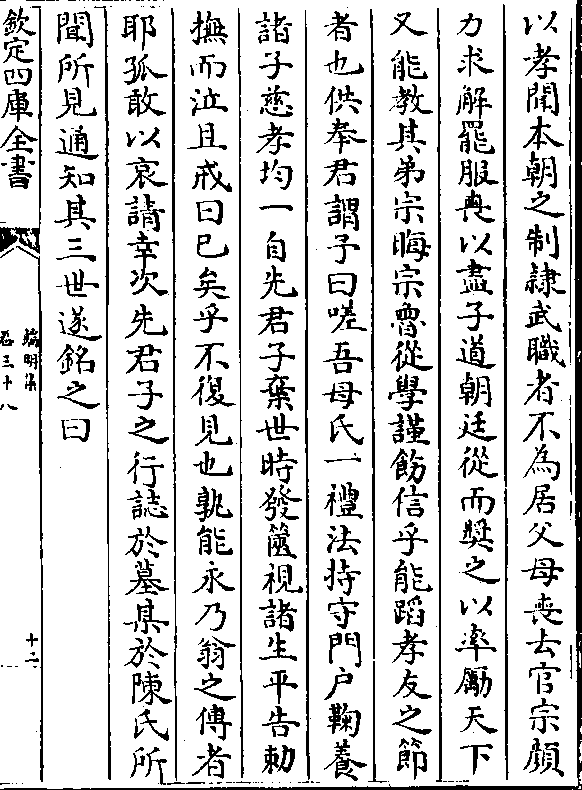 以孝聞本朝之制隷武職者不為居父母喪去官宗顔
力求解罷服喪以盡子道朝廷從而奬之以率勵天下
又能教其弟宗晦宗魯從學謹飭信乎能蹈孝友之節
者也供奉君謂予曰嗟吾母氏一禮法持守門户鞠養
諸子慈孝均一自先君子棄世時發篋視諸生平告勅
撫而泣且戒曰已矣乎不復見也孰能永乃翁之傳者
耶孤敢以哀請幸次先君子之行誌於墓某於陳氏所
聞所見通知其三世遂銘之曰
欽定四庫全書
端明集
卷三十八
十二